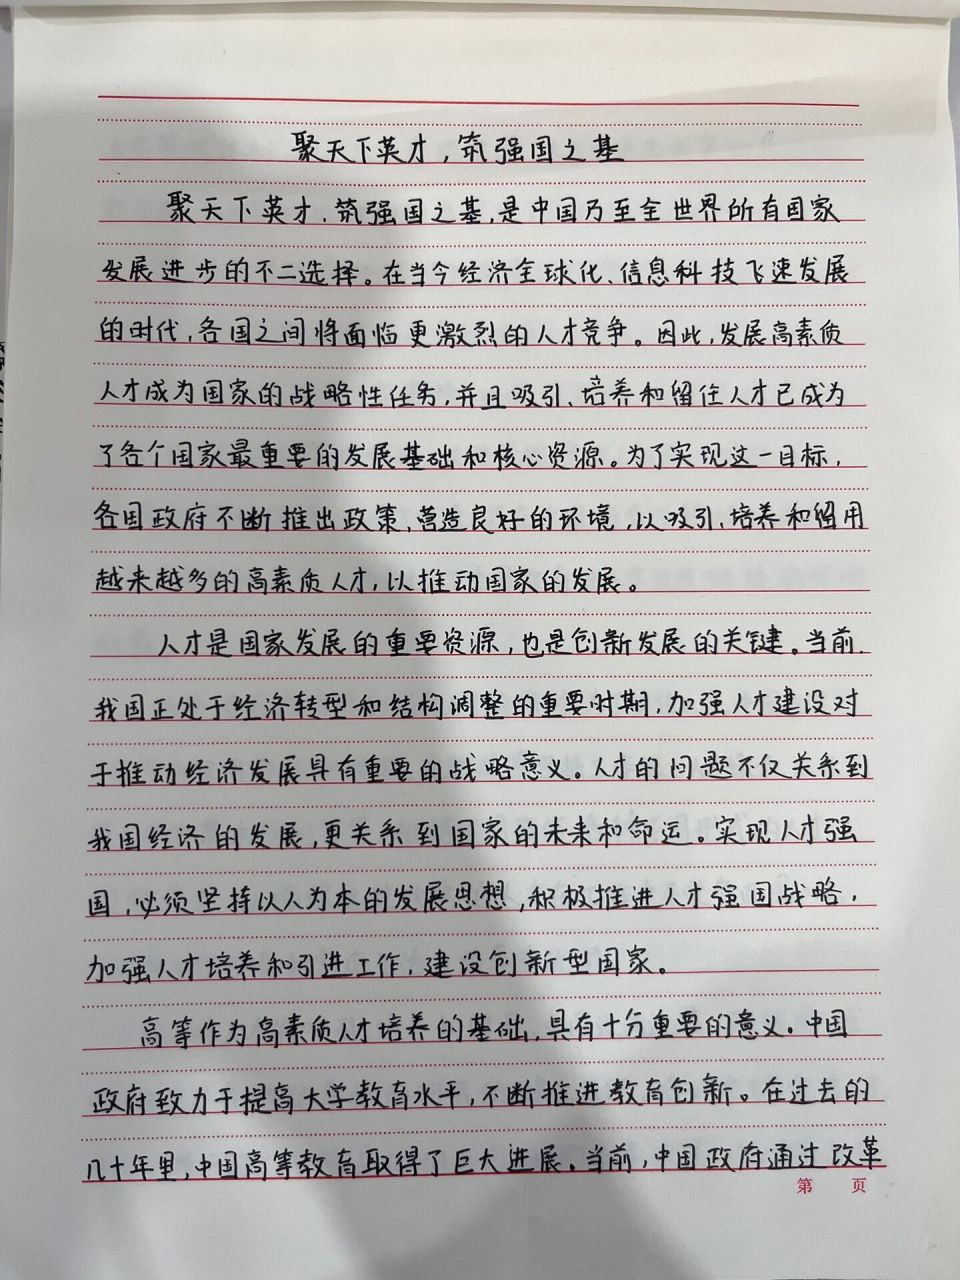 聚天下英才，筑强国之基
聚天下英才、筑强国之基，是中国乃至全世界所有国家
发展进步的不二选择。在当今经济全球化、信息科技飞速发展
的时代，各国之间将面临更激烈的人才竞争。因此，发展高素质
人才成为国家的战略性任务，并且吸引、培养和留住人才已成为
了各个国家最重要的发展基础和核心资源。为了实现这一目标，
各国政府不断推出政策，营造良好的环境，以吸引、培养和留用
越来越多的高素质人才，以推动国家的发展。
人才是国家发展的重要资源，也是创新发展的关键。当前，
我国正处于经济转型和结构调整的重要时期，加强人才建设对
于推动经济发展具有重要的战略意义。人才的问题不仅关系到
我国经济的发展，更关系到国家的未来和命运。实现人才强
国，必须坚持以人为本的发展思想，积极推进人才强国战略，
加强人才培养和引进工作，建设创新型国家。
高等作为高素质人才培养的基础，具有十分重要的意义。中国
政府致力于提高大学教育水平，不断推进教育创新。在过去的
几十年里，中国高等教育取得了巨大进展。当前，中国政府通过改革
第 页